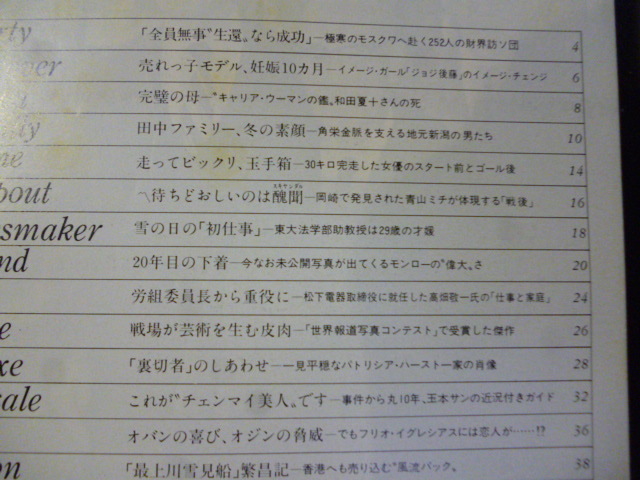 rty 「全員無事〝生還〟なら成功」―極寒のモスクワへ赴く252人の財界訪ソ団 4
over 売れっ子モデル、妊娠10カ月―イメージ・ガール「ジョジ後藤」のイメージ・チェンジ 6
完璧の母―〝キャリア・ウーマンの鑑〟和田夏十さんの死 8
ily 田中ファミリー、冬の素顔―角栄金脈を支える地元新潟の男たち 10
me 走ってビックリ、玉手箱―30キロ完走した女優のスタート前とゴール後 14
bout 〽待ちどおしいのは醜聞―岡崎で発見された青山ミチが体現する「戦後」 16
smaker 雪の日の「初仕事」―東大法学部助教授は29歳の才媛 18
nd 20年目の下着―今なお未公開写真が出てくるモンローの〝偉大〟さ 20
労組委員長から重役に―松下電器取締役に就任した高畑敬一氏の「仕事と家庭」 24
e 戦場が芸術を生む皮肉―「世界報道写真コンテスト」で受賞した傑作 26
xe 「裏切者」のしあわせ―一見平穏なパトリシア・ハースト一家の肖像 28
ale これが〝チェンマイ美人〟です―事件から丸10年、玉本サンの近況付きガイド 32
オバンの喜び、オジンの脅威―でもフリオ・イグレシアスには恋人が……!? 36
on 「最上川雪見船」繁昌記―香港へも売り込む〝風流パック〟 38